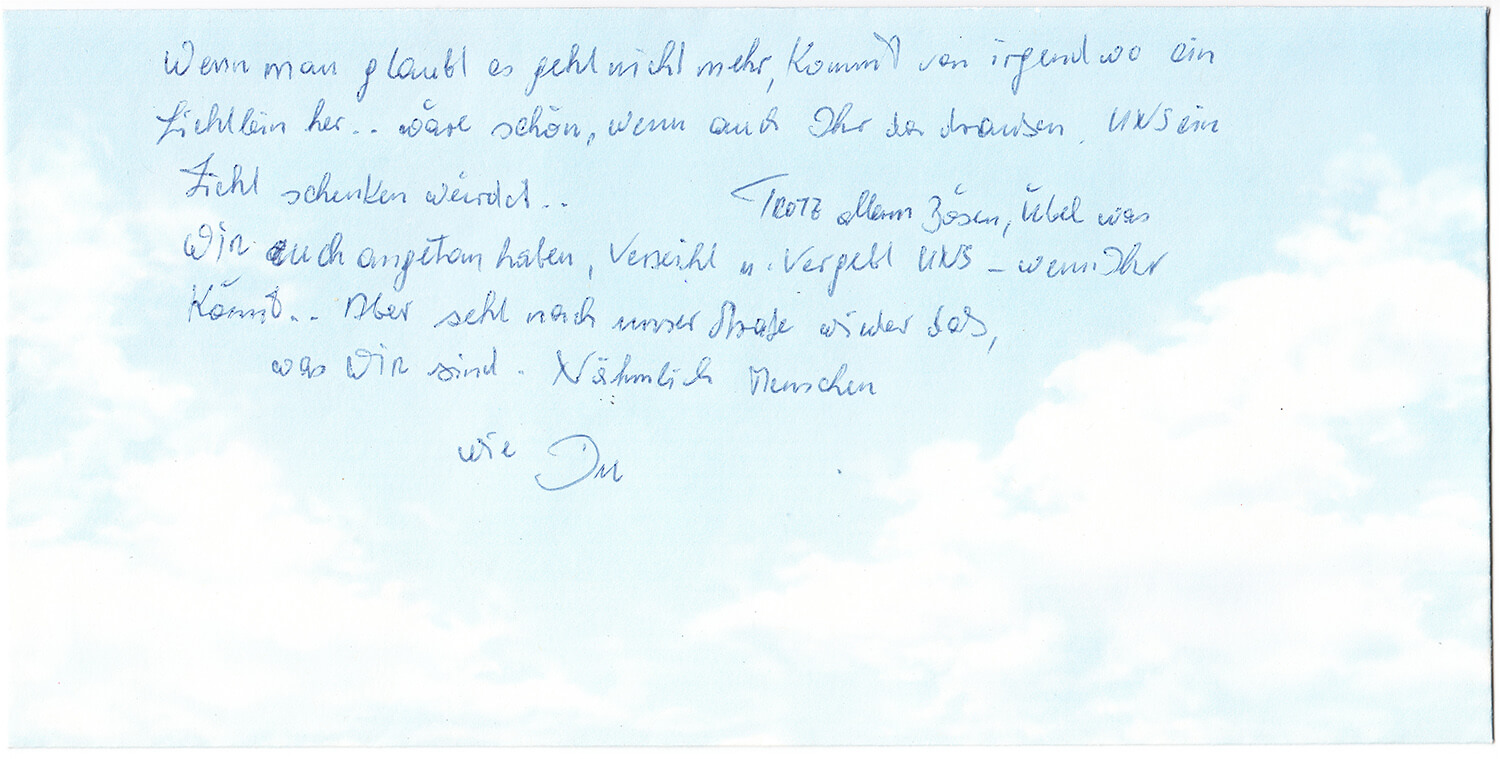 Wenn man glaubt es geht nicht mehr, Kommt von irgendwo ein
Lichtlein her.. wäre schön, wenn auch Ihr da drausen. UNS ein
Licht schenken würdet..
TROTZ allem Bösen, Übel was
WIR euch angetan haben, Verzeiht u. Vergebt UNS – wenn Ihr
Könnt.. Aber seht nach unser Strafe wieder das,
was WIR sind. Nähmlich Menschen
wie Du